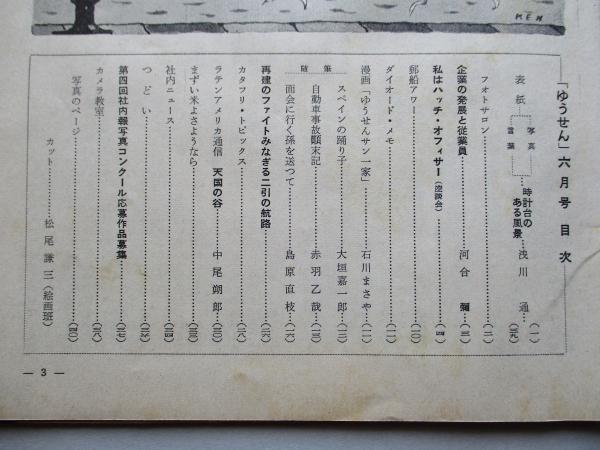 KEN
「ゆうせん」六月号 目次
表紙 写真 言葉 時計台のある風景 浅川 通 (一)
フォトサロン (二)
企業の発展と従業員 河合 彌 (三)
私はハッチ・オフィサー(座談会) (四)
郵船アワー
ダイオード・メモ (一一)
漫画「ゆうせんサン一家」 石川まさや (一二)
随筆
スペインの踊り子 大垣嘉一郎
自動車事故顚末記 赤羽乙哉
面会に行く孫を送つて 島原直枝
再建のファイトみなぎる二引の航路
カタフリ・トピックス
ラテンアメリカ通信 天国の谷 中尾朔郎
まずい米よさようなら
社内ニュース
つどい
第四回社内報写真コンクール応募作品募集
カメラ教室
写真のページ
カット 松尾謙三(絵画班)
— 3 —